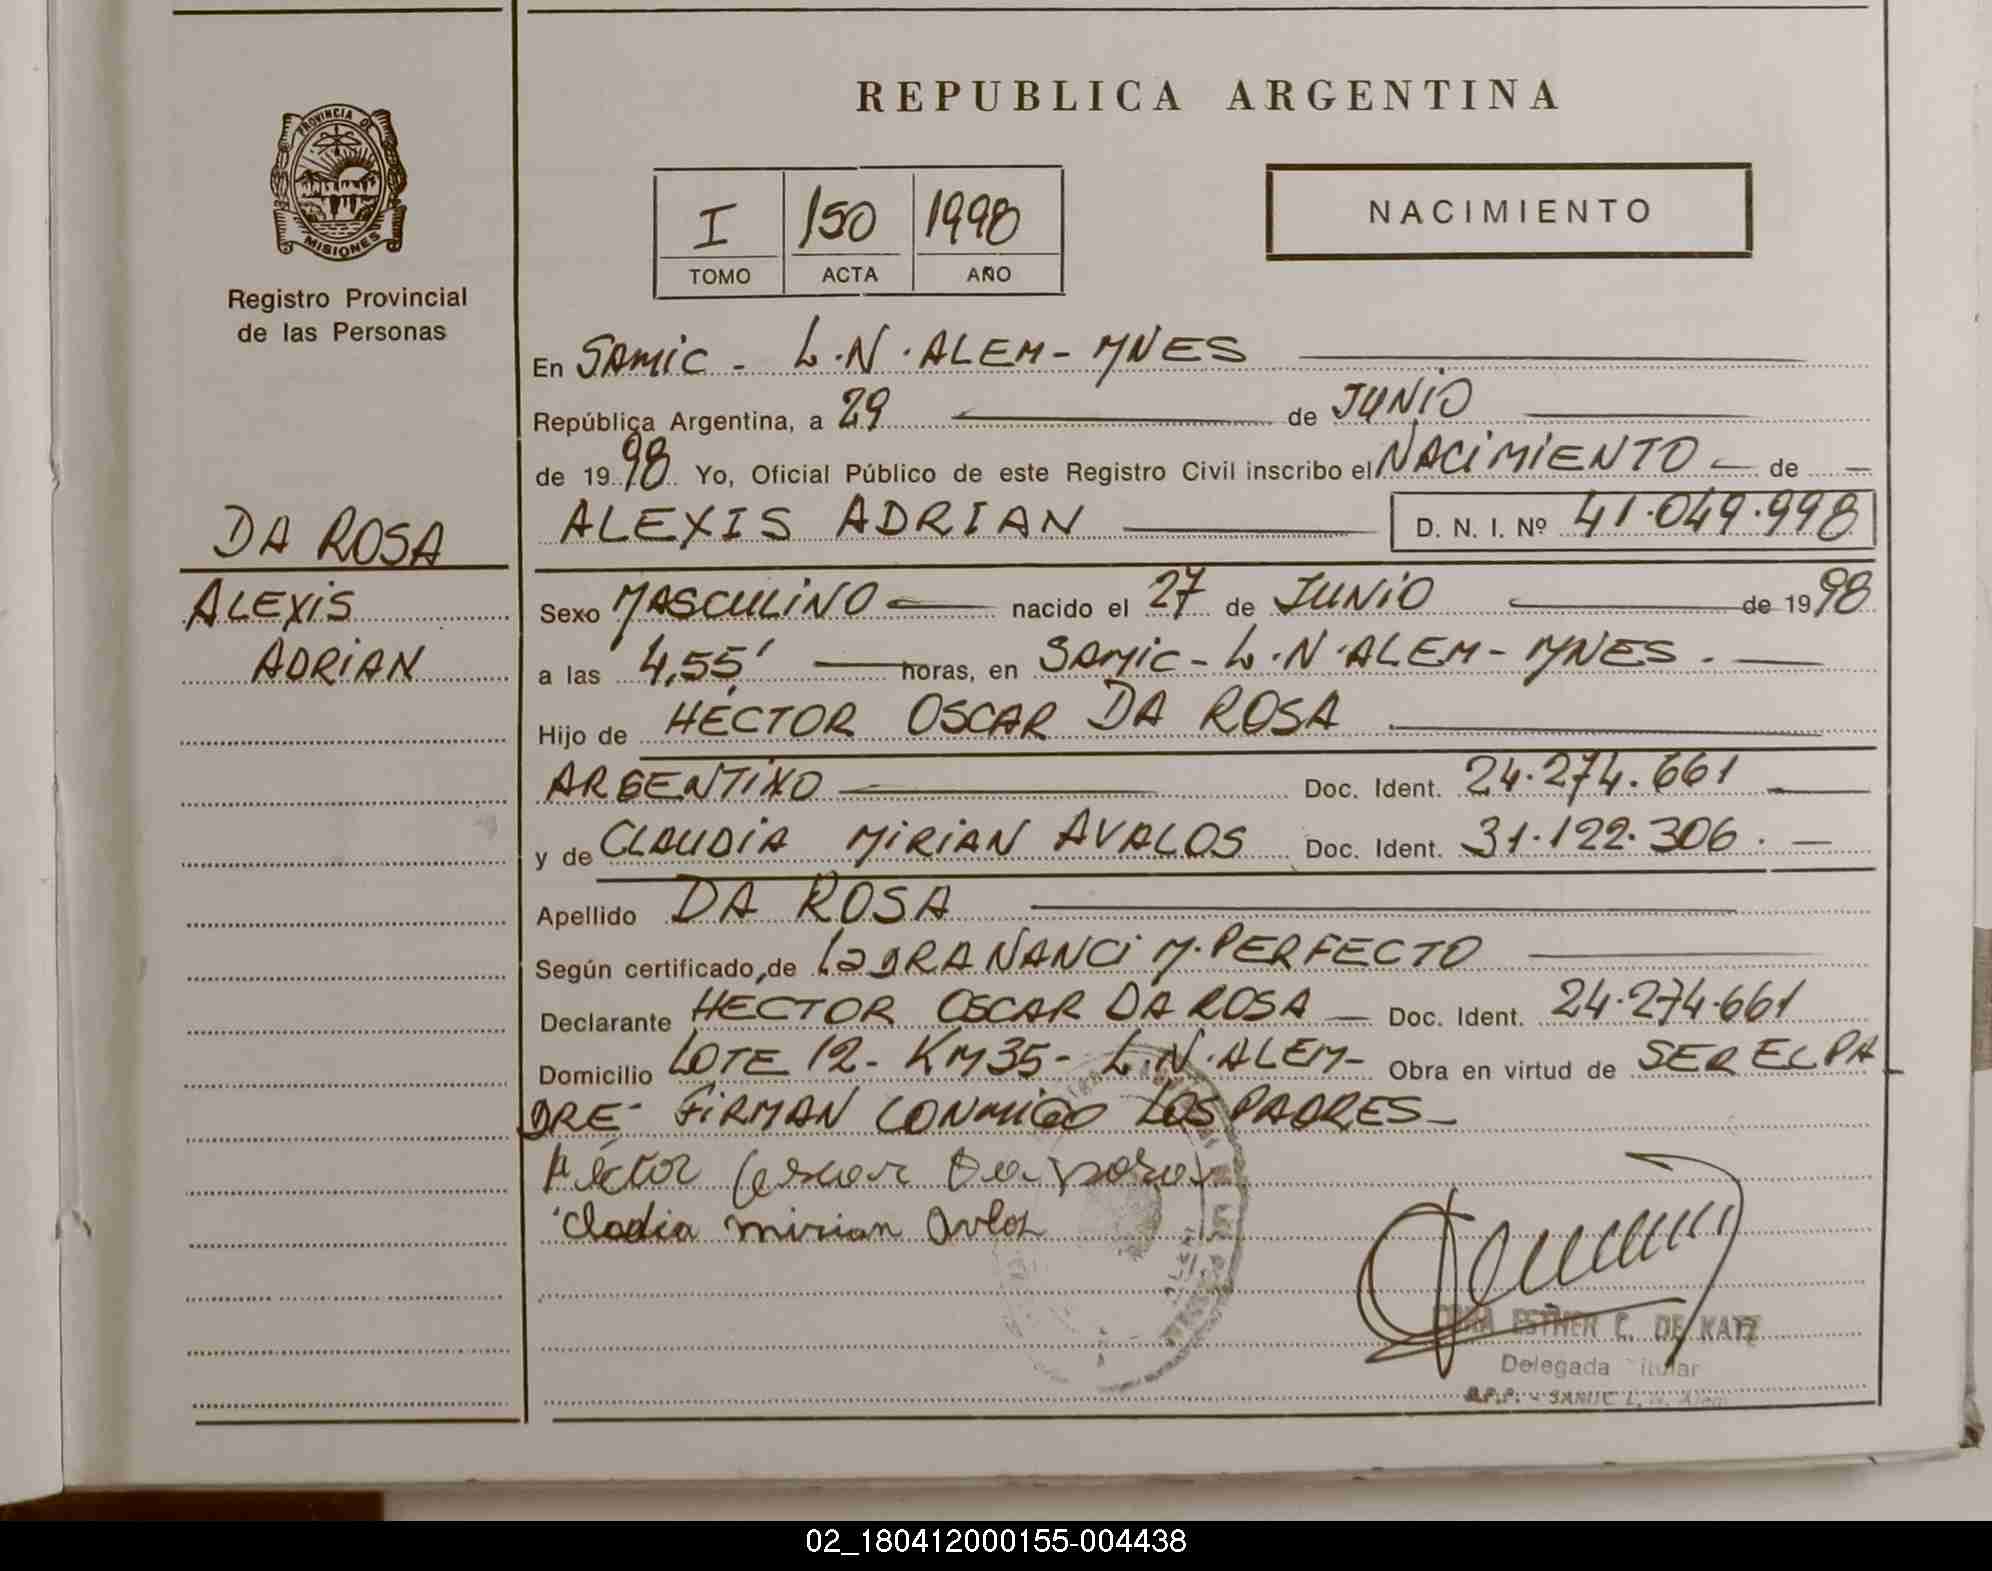 REPUBLICA ARGENTINA
PROVINCIA DE
MISIONES
Registro Provincial
de las Personas
I 150 1998
TOMO ACTA AÑO
NACIMIENTO
En SAMIC - L.N. ALEM - MNES
República Argentina, a 29 de JUNIO
de 1998 Yo, Oficial Público de este Registro Civil inscribo el NACIMIENTO - de -
DA ROSA
ALEXIS
ADRIAN
ALEXIS ADRIAN D. N. I. Nº 41.049.998
Sexo MASCULINO nacido el 27 de JUNIO de 1998
a las 4,55' horas, en SAMIC - L.N. ALEM - MNES. -
Hijo de HÉCTOR OSCAR DA ROSA
ARGENTINO Doc. Ident. 24.274.661
y de CLAUDIA MIRIAN AVALOS Doc. Ident. 31.122.306. -
Apellido DA ROSA
Según certificado, de la DRA NANCI M. PERFECTO
Declarante HECTOR OSCAR DA ROSA - Doc. Ident. 24.274.661
Domicilio LOTE 12 - KM 35 - L.N. ALEM - Obra en virtud de SER EL PA
DRE - FIRMAN CONMIGO LOS PADRES -
Héctor Oscar Da Rosa
Clodia mirian
ESTHER C. DE KATZ
Delegada Titular
R.P.P. - SAMIC L. N. Alem
02_180412000155-004438